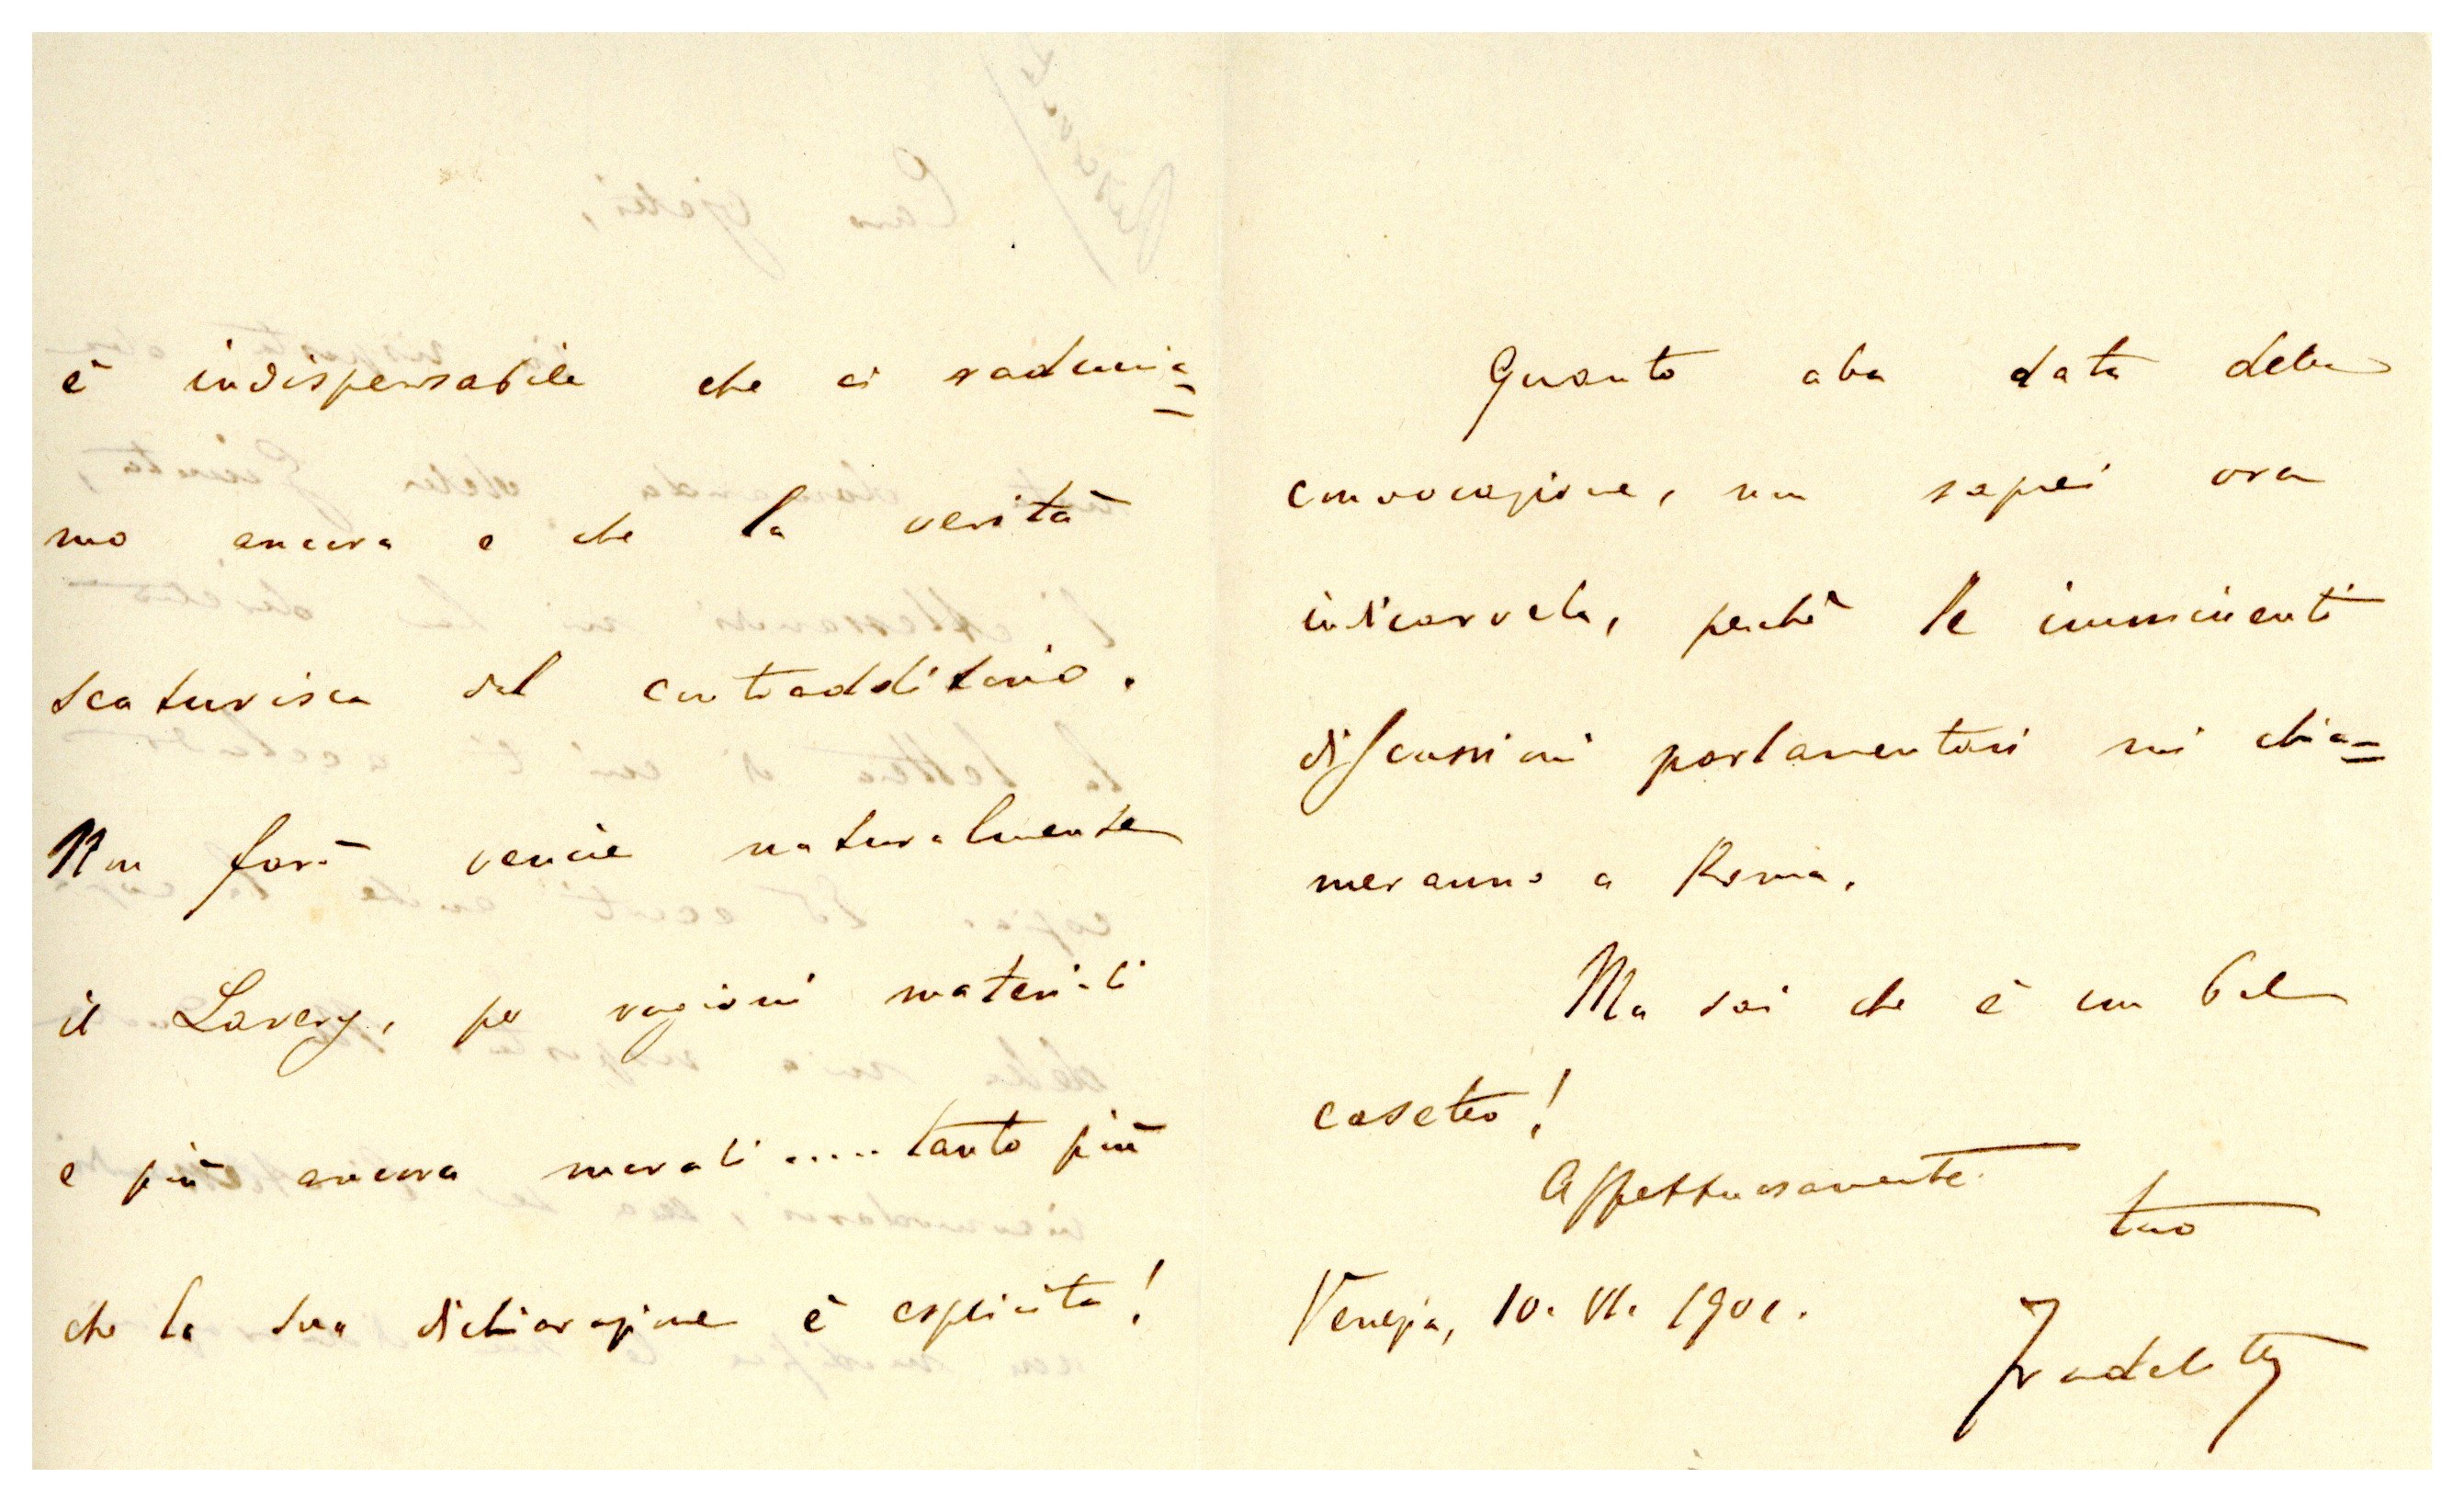 è indispensabile che ci radunia=
mo ancora e che la verità
scaturisca dal contradditorio.
Non farò venire naturalmente
il Lavery, per ragioni materiali
e più ancora morali ..... tanto più
che la sua dichiarazione è esplicita!
Quanto alla data della
convocazione, non saprei ora
indicarvela, perchè le imminenti
discussioni parlamentari mi chia=
meranno a Roma.
Ma sai che è un bel
casetto!
Affettuosamente
tuo
Venezia, 10. VI. 1901.
Fradeletto